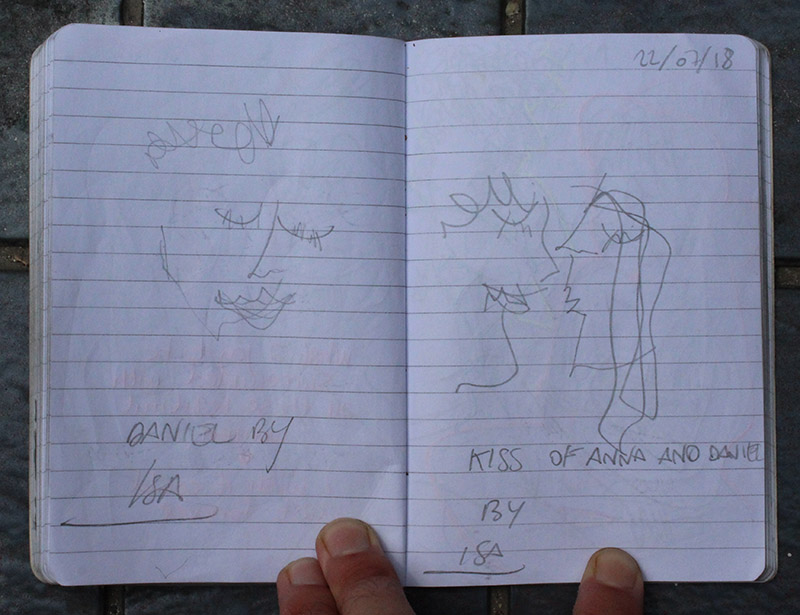 DANIEL BY
ISA
22/07/18
KISS OF ANNA AND DANIEL
BY
ISA